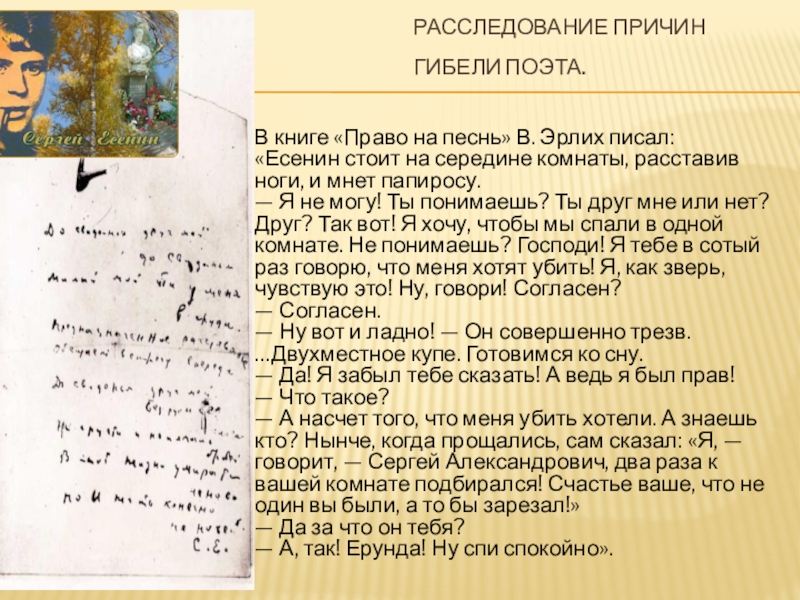 РАССЛЕДОВАНИЕ ПРИЧИН
ГИБЕЛИ ПОЭТА.
Сергей Есенин
В книге «Право на песнь» В. Эрлих писал:
«Есенин стоит на середине комнаты, расставив
ноги, и мнет папиросу.
— Я не могу! Ты понимаешь? Ты друг мне или нет?
Друг? Так вот! Я хочу, чтобы мы спали в одной
комнате. Не понимаешь? Господи! Я тебе в сотый
раз говорю, что меня хотят убить! Я, как зверь,
чувствую это! Ну, говори! Согласен?
— Согласен.
— Ну вот и ладно! — Он совершенно трезв.
...Двухместное купе. Готовимся ко сну.
— Да! Я забыл тебе сказать! А ведь я был прав!
— Что такое?
— А насчет того, что меня убить хотели. А знаешь
кто? Нынче, когда прощались, сам сказал: «Я, —
говорит, — Сергей Александрович, два раза к
вашей комнате подбирался! Счастье ваше, что не
один вы были, а то бы зарезал!»
— Да за что он тебя?
— А, так! Ерунда! Ну спи спокойно».
До свиданья друг мой
до свиданья
Милый мой ты у меня
в груди.
Предназначенное расставанье
Обещает встречу впереди
До свиданья друг мой
без руки
Не грусти и
В этой жизни умирать
не ново
Но и жить конечно
не новей.
С.Е.